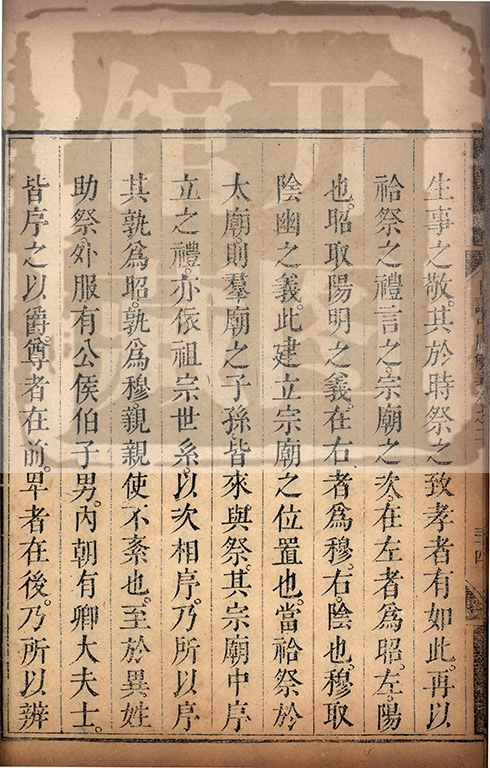 生事之敬。其於時祭之致孝者有如此。再以
祫祭之禮言之。宗廟之次。在左者為昭。左。陽
也。昭取陽明之義。在右者為穆。右。陰也。穆取
陰幽之義。此建立宗廟之位置也。當祫祭於
太廟。則羣廟之子孫。皆來與祭。其宗廟中序
立之禮。亦依祖宗世系。以次相序。乃所以序
其孰為昭。孰為穆。親親使不紊也。至於異姓
助祭。外服有公侯伯子男。內朝有卿大夫士。
皆序之以爵。尊者在前。卑者在後。乃所以辨